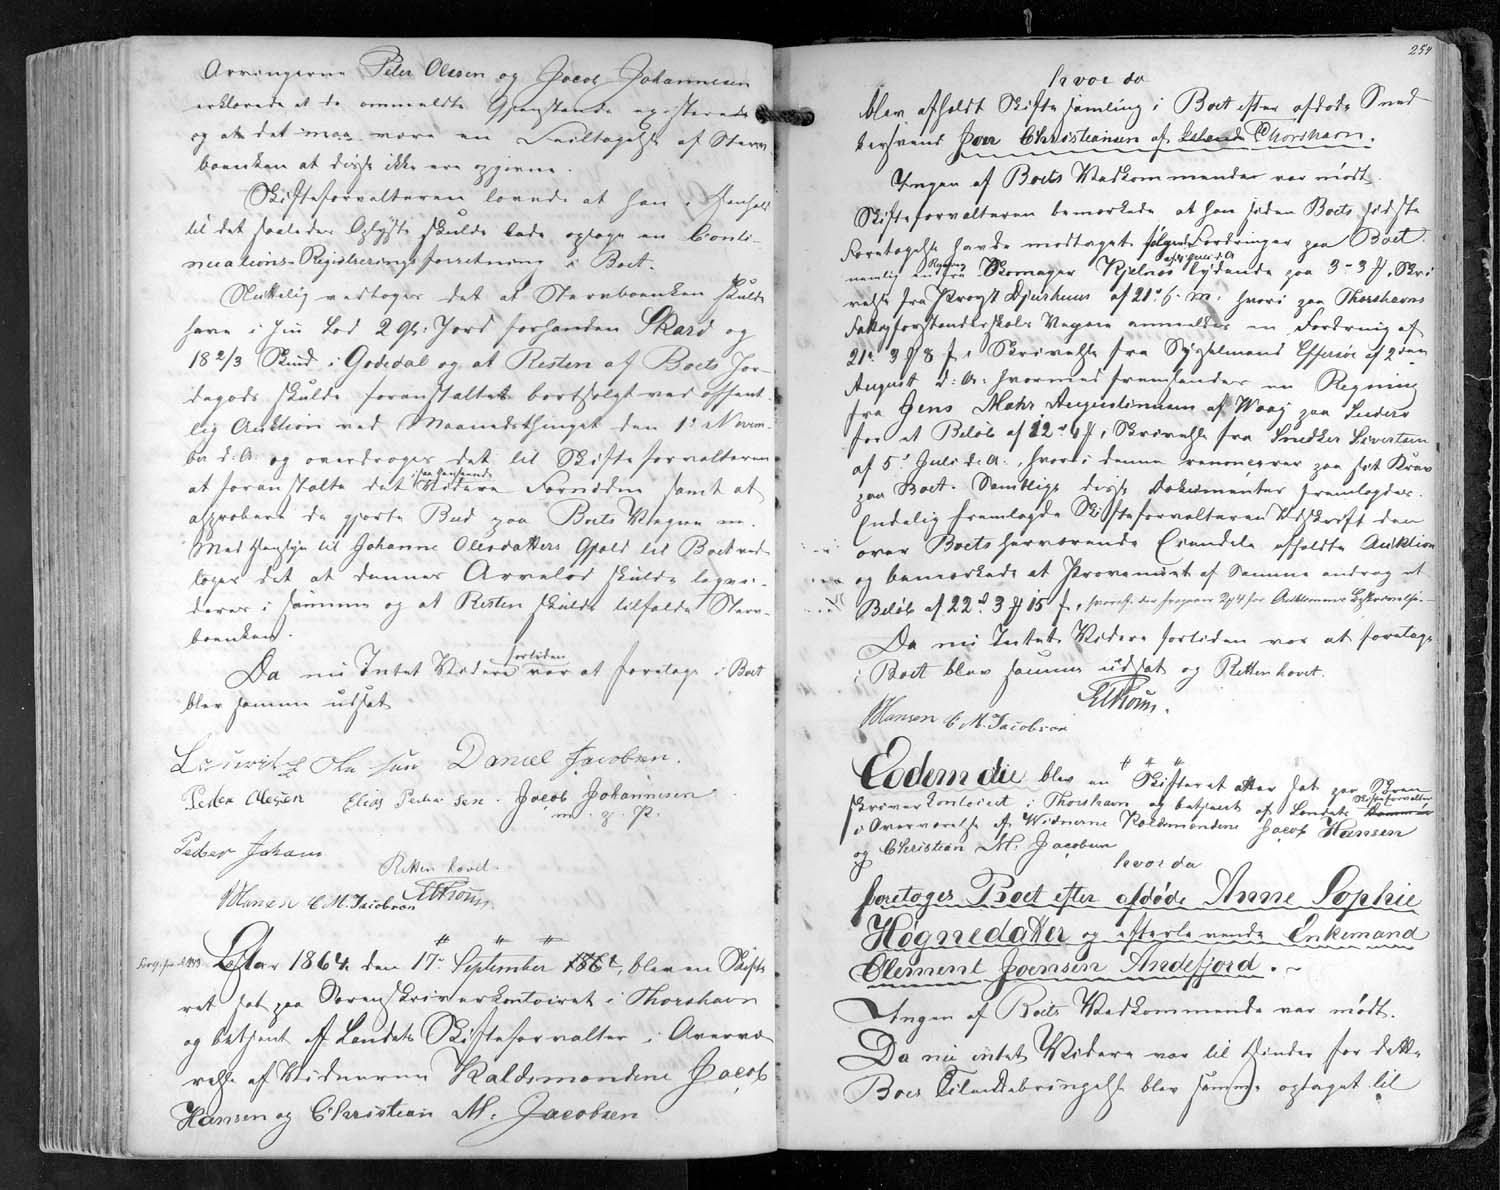 Arvingerne Peter Olesen og Jacob Johannesen
erklærede at de ommeldte Gjenstande existerede
og at det maa være en Feiltagelse af Stervbo
boenken at disse ikke ere opgivne.
Skifteforvalteren lovede at han i Henhold
til det saaledes Oplyste skulde lade optage en Conti-
nuations-Registreringsforretning i Boet.
Sluttelig vedtoges det at Stervboenken skulde
have i sin Lod 2 Gl. Jord forhenden Skard og
18 2/3 Skind i Godedal og at Resten af Boets Jor-
degods skulde foranstaltet bortsolgt ved offent-
lig Auktion ved Maanedsthinget den 1ste Novem-
ber d. A. og overdroges det til Skifteforvalteren
at foranstalte det i saa Henseende Videre Fornødne samt at
approbere de gjorte Bud paa Boets Vegne m.
Med Hensyn til Johanne Olesdatters Gjæld til Boet ved-
toges det at dennes Arvelod skulde liqvi-
deres i samme og at Resten skulde tilfalde Sterv-
boenken.
Da nu Intet Videre fortiden var at foretage i Boet
blev samme udsat
Lauritz Olesen Daniel Jacobsen.
Peder Olesen Elias Pedersen. Jacob Johannesen
m. f. P.
Peder Johans
Retten hævet.
JHansen C. M. Jacobsen
Aar 1864 den 17de September 1864, blev en Skifte
ret sat paa Sorenskriverkontoiret i Thorshavn
og betjent af Landets Skifteforvalter i Overvæ-
relse af Vidnerne Raadsmændene Jacob
Hansen og Christian M. Jacobsen
254
hvor da
blev afholdt Skiftesamling i Boet efter afdøde Sned-
kersvend Joen Christiansen af Thorshavn.
Ingen af Boets Vedkommende var mødt.
Skifteforvalteren bemærkede at han siden Boets sidste
Foretagelse havde modtaget følgende Fordringer paa Boet
nemlig en Regning fra Skomager Kjelnæs lydende paa 3-3 ß, Skri
velse fra Provst Djurhuus af 21de f. m. hvori paa Thorshavns
Vegne anmeldes en Fordring af
21 3 ß 8 f, Skrivelse fra Sysselmand Effersøe af 2den
August d. A. hvormed fremsendes en Regning
fra Jens Mohr Augustinussen af Waag paa Suderø
for et Beløb af 12 4 ß, Skrivelse fra Snedker Sivertsen
af 5te Juli d. A., hvori denne renoncerer paa sit Krav
paa Boet. Samtlige disse Dokumenter fremlagdes.
Endelig fremlagde Skifteforvalteren Udskrift den
over Boets herværende Eiendele afholdte Auktion
og bemærkede at Provenuet af Samme androg et
Beløb af 22 3 ß 15 f,
Da nu Intet Videre fortiden var at foretage
i Boet blev samme udsat og Retten hævet.
JHansen C. M. Jacobsen
Eodem die blev en Skifteret atter sat paa Soren
skriverkontoiret i Thorshavn og betjent af Landets Skifteforvalter
i Overværelse af Vidnerne Raadsmændene Jacob Hansen
og Christian M. Jacobsen
hvor da
foretoges Boet efter afdøde Anne Sophie
Høgnedatter og efterlevende Enkemand
Clement Joensen Andefjord.
Ingen af Boets Vedkommende var mødt.
Da nu intet Videre var til Hinder for dette
Boes Tilendebringelse blev samme optaget til